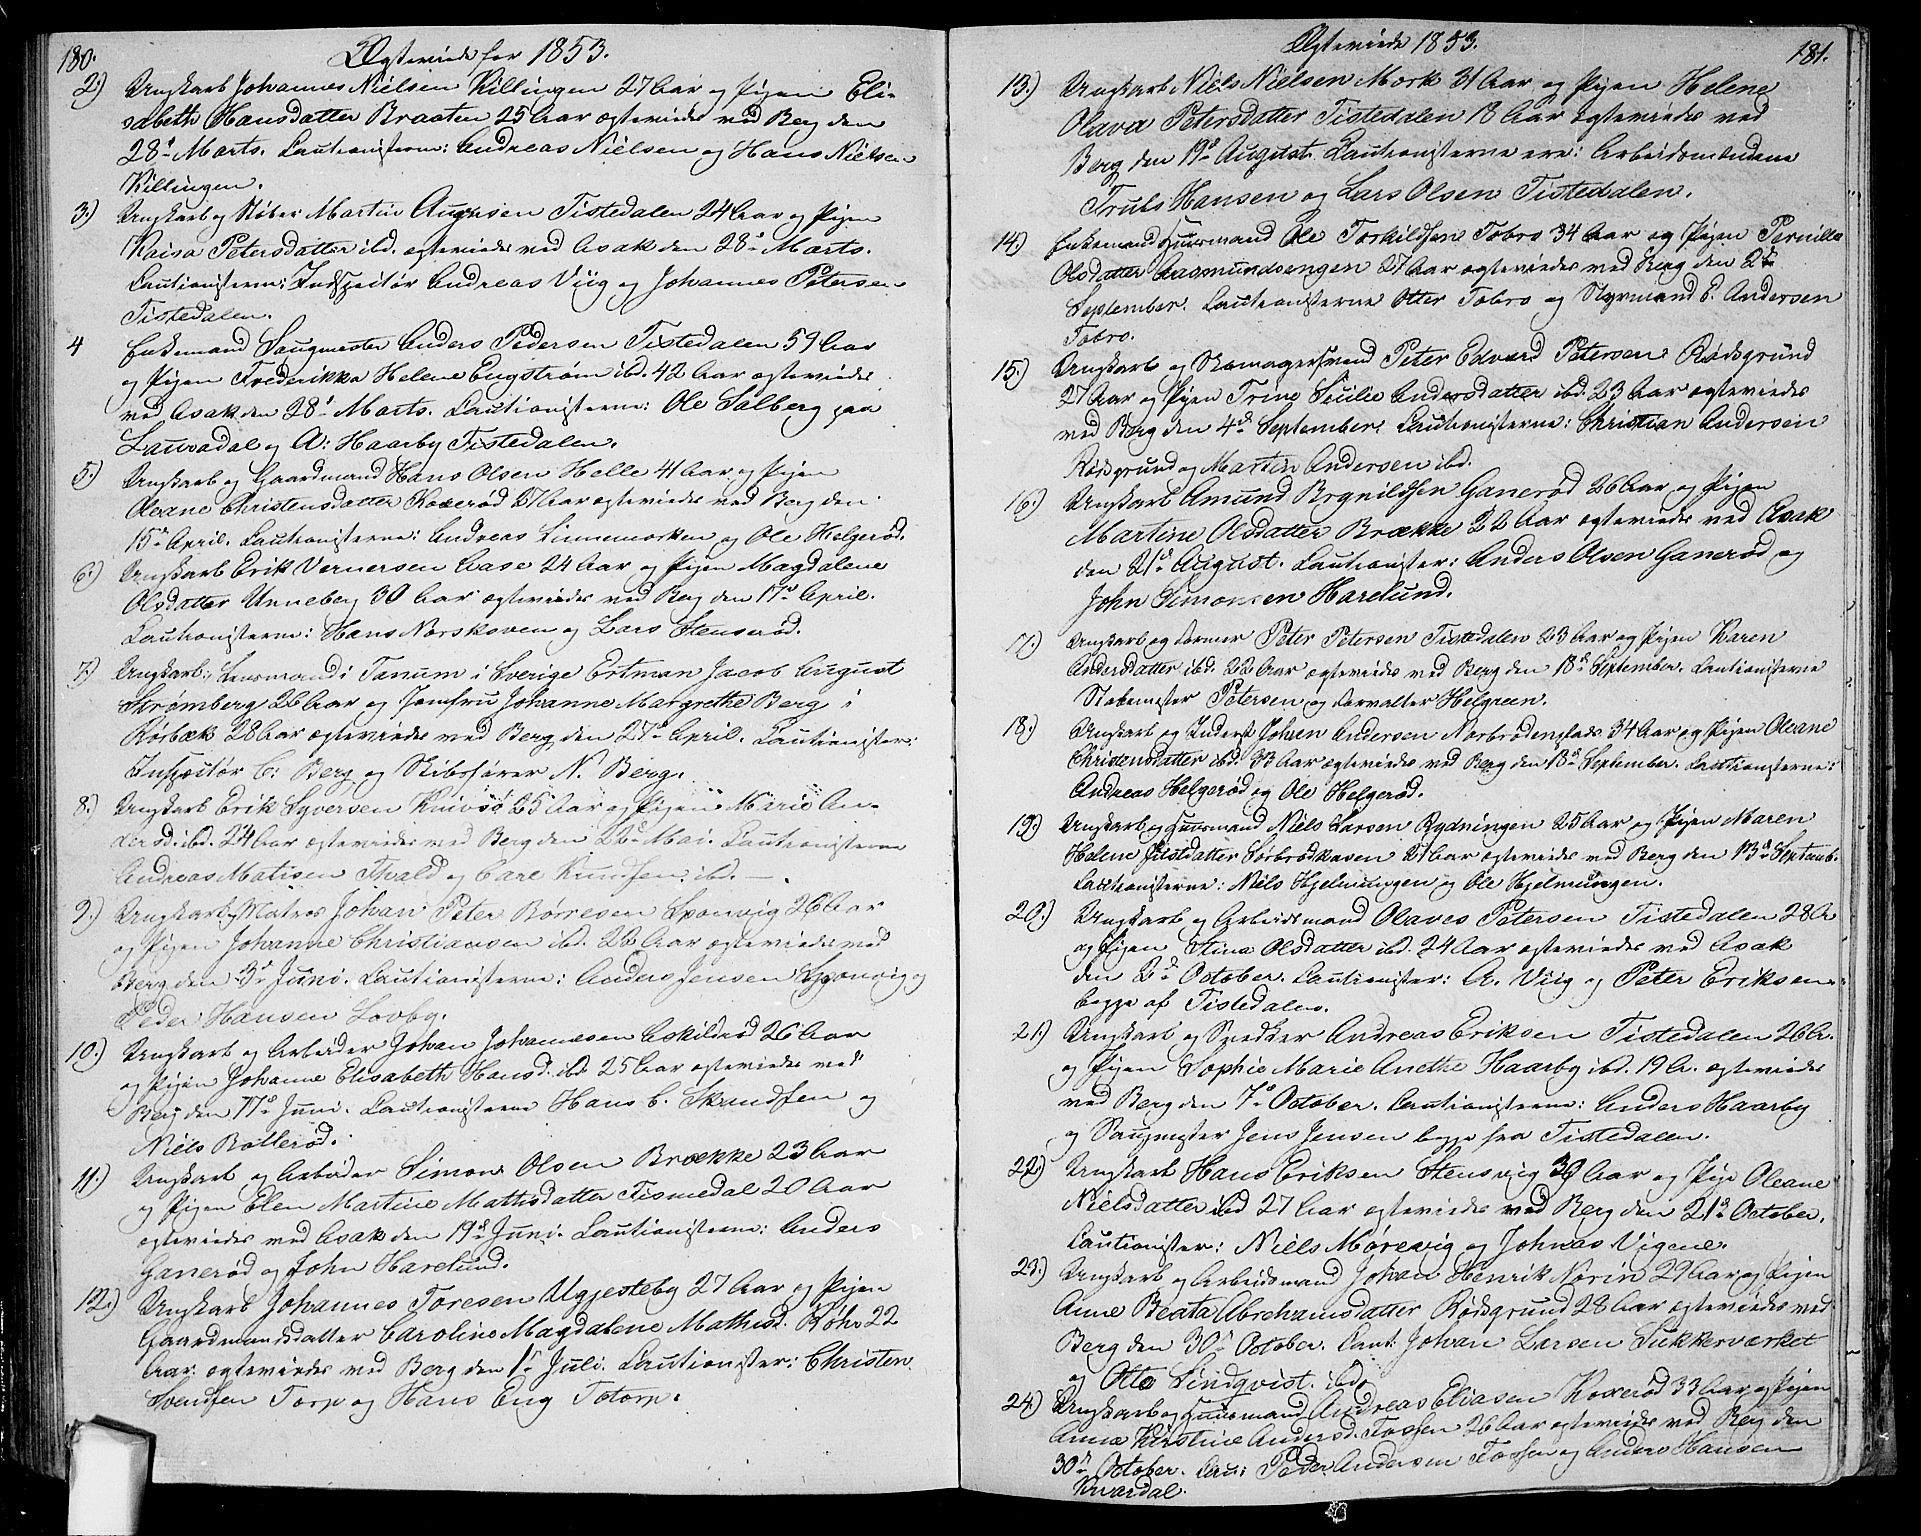 180.
Ægteviede for 1853.
2.) Ungkarl Johannes Nielsen Killingen 27 Aar og Pigen Eli-
sabeth Hansdatter Braaten 25 Aar ægteviede ved Berg den
28de Marts. Cautionisterne: Andreas Nielsen og Hans Nielsen
Killingen.
3.) Ungkarl og Støber Martin Augensen Tistedalen 24 Aar og Pigen
Kaisa Petersdatter ibd. ægteviede ved Asak den 28de Marts.
Cautionisterne: Indspektør Andreas Viig og Johannes Petersen
Tistedalen.
4 Enkemand Saugmester Anders Pedersen Tistedalen 59 Aar
og Pigen Frederikka Helene Engstrøm ibd. 42 Aar ægteviede
ved Asak den 28de Marts. Cautionisterne: Ole Solberg paa
Lauvadal og A: Haarby Tistedalen.
5.) Ungkarl og Gaardmand Hans Olsen Helle 41 Aar og Pigen
Oleane Christensdatter Koxerød 27 Aar ægteviede ved Berg den
15de April. Cautionisterne: Andreas Linnemorken og Ole Helgerød.
6.) Ungkarl Erik Vernersen Aase 24 Aar og Pigen Magdalene
Olsdatter Unneberg 30 Aar ægteviede ved Berg den 17de April.
Cautionisterne: Hans Norskoven og Lars Stenserød.
7.) Ungkarl, Lensmand i Tanum i Sverige Ertman Jacob August
Strømberg 26 Aar og Jomfru Johanne Margrethe Berg i
Rørbæk 28 Aar ægteviede ved Berg den 27de April. Cautionister:
Inspectør C: Berg og Skibsfører N. Berg.
8.) Ungkarl Erik Syversen Knivsø 25 Aar og Pigen Marie An-
dersd. ibd. 24 Aar ægteviede ved Berg den 22de Mai. Cautionisterne
Andreas Matisen Tvald og Carl Knudsen ibd. —.
9.) Ungkarl, Matros Johan Peter Børresen Sponvig 26 Aar
og Pigen Johanne Christiansen ibd. 26 Aar ægteviede ved
Berg den 3de Juni. Cautionisterne: Anders Jensen Sponvig og
Peder Hansen Lovby.
10.) Ungkarl og Arbeider Johan Johannesen Askilsrød 26 Aar
og Pigen Johanne Elisabeth Hansd. ibd. 25 Aar ægteviede ved
Berg den 17de Juni. Cautionisterne Hans C. Strandsen og
Niels Bøllerød.
11.) Ungkarl og Arbeider Simon Olsen Brække 23 Aar
og Pigen Elen Martine Mathisdatter Tismedal 20 Aar
ægteviede ved Asak den 19de Juni. Cautionisterne: Anders
Ganerød og John Harelund.
12.) Ungkarl Johannes Toresen Uggesteby 27 Aar og Pigen
Gaardmandsdatter Caroline Magdalene Mathisd. Røhr 22
Aar. ægteviede ved Berg den 1ste Juli. Cautionister: Christen
Svendsen Torp og Hans Eng Totorp.
181.
Ægteviede 1853.
13.) Ungkarl Niels Nielsen Mork 31 Aar og Pigen Helene
Olava Petersdatter Tistedalen 18 Aar ægteviede ved
Berg den 19de August. Cautionisterne ere: Arbeidsmændene
Truls Hansen og Lars Olsen Tistedalen.
14.) Enkemand Huusmand Ole Torkildsen Tobro 34 Aar og Pigen Pernille
Olsdatter Aasmundsengen 27 Aar ægteviede ved Berg den 2de
September. Cautionisterne Otter Tobro og Styrmand E. Andersen
Tobro.
15.) Ungkarl og Skomagersvend Peter Edvard Petersen Rødsgrund
27 Aar og Pigen Trine Sicilie Andersdatter ibd. 23 Aar ægteviede
ved Berg den 4de September. Cautionisterne: Christian Andersen
Rødsgrund og Martin Andersen ibd.
16.) Ungkarl Amund Brynildsen Ganerød 26 Aar og Pigen
Martine Olsdatter Brække 22 Aar ægteviede ved Asak
den 21de August. Cautionister: Anders Olsen Ganerød og
John Simonsen Harelund.
17.) Ungkarl og Former Peter Petersen Tistedalen 23 Aar og Pigen Karen
Andersdatter ibd. 22 Aar ægteviede ved Berg den 18de September. Cautionisterne
Støbemester Petersen og Forvalter Helgreen.
18.) Ungkarl og Inderst Johan Andersen Norbrødenplads 34 Aar og Pigen Oleane
Christensdatter ibd. 33 Aar ægteviede ved Berg den 18de September. Cautionisterne:
Andreas Helgerød og Ole Helgerød.
19.) Ungkarl og Huusmand Niels Larsen Rydningen 25 Aar og Pigen Maren
Helene Juelsdatter Sørbrødkasen 21 Aar ægteviede ved Berg den 13de Septemb.
Cautionisterne: Niels Hjelmungen og Ole Hjelmungen.
20.) Ungkarl og Arbeidsmand Olaves Petersen Tistedalen 28 A
og Pigen Stina Olsdatter ibd. 24 Aar ægteviede ved Asak
den 2de October. Cautionister: A. Viig og Peter Eriksen
begge af Tistedalen.
21.) Ungkarl og Snedker Andreas Eriksen Tistedalen 26 A.
og Pigen Sophie Marie Anethe Haarby ibd. 19 A. ægteviede
ved Berg den 7de October. Cautionisterne: Anders Haarby
og Saugmester Jens Jensen begge fra Tistedalen.
22.) Ungkarl Hans Eriksen Stensvig 30 Aar og Pige Oleane
Nielsdatter ibd 27 Aar ægteviede ved Berg den 21de October.
Cautionister: Niels Mørevig og Johnas Vigene.
23.) Ungkarl og Arbeidsmand Johan Henrik Norin 29 Aar og Pigen
Anne Beata Abrehamsdatter Rødsgrund 28 Aar ægteviede ved
Berg den 30te October. Caut: Johan Larsen Sukkerværket
og Otto Lindqvist. ibd.
24.) Ungkarl og Huusmand Andreas Eliasen Koxerød 33 Aar og Pigen
Anne Kirstine Andersd. Fossen 26 Aar ægteviede ved Berg den
30te October. Cau: Peder Andersen Fossen og Anders Hansen
Kvardal.